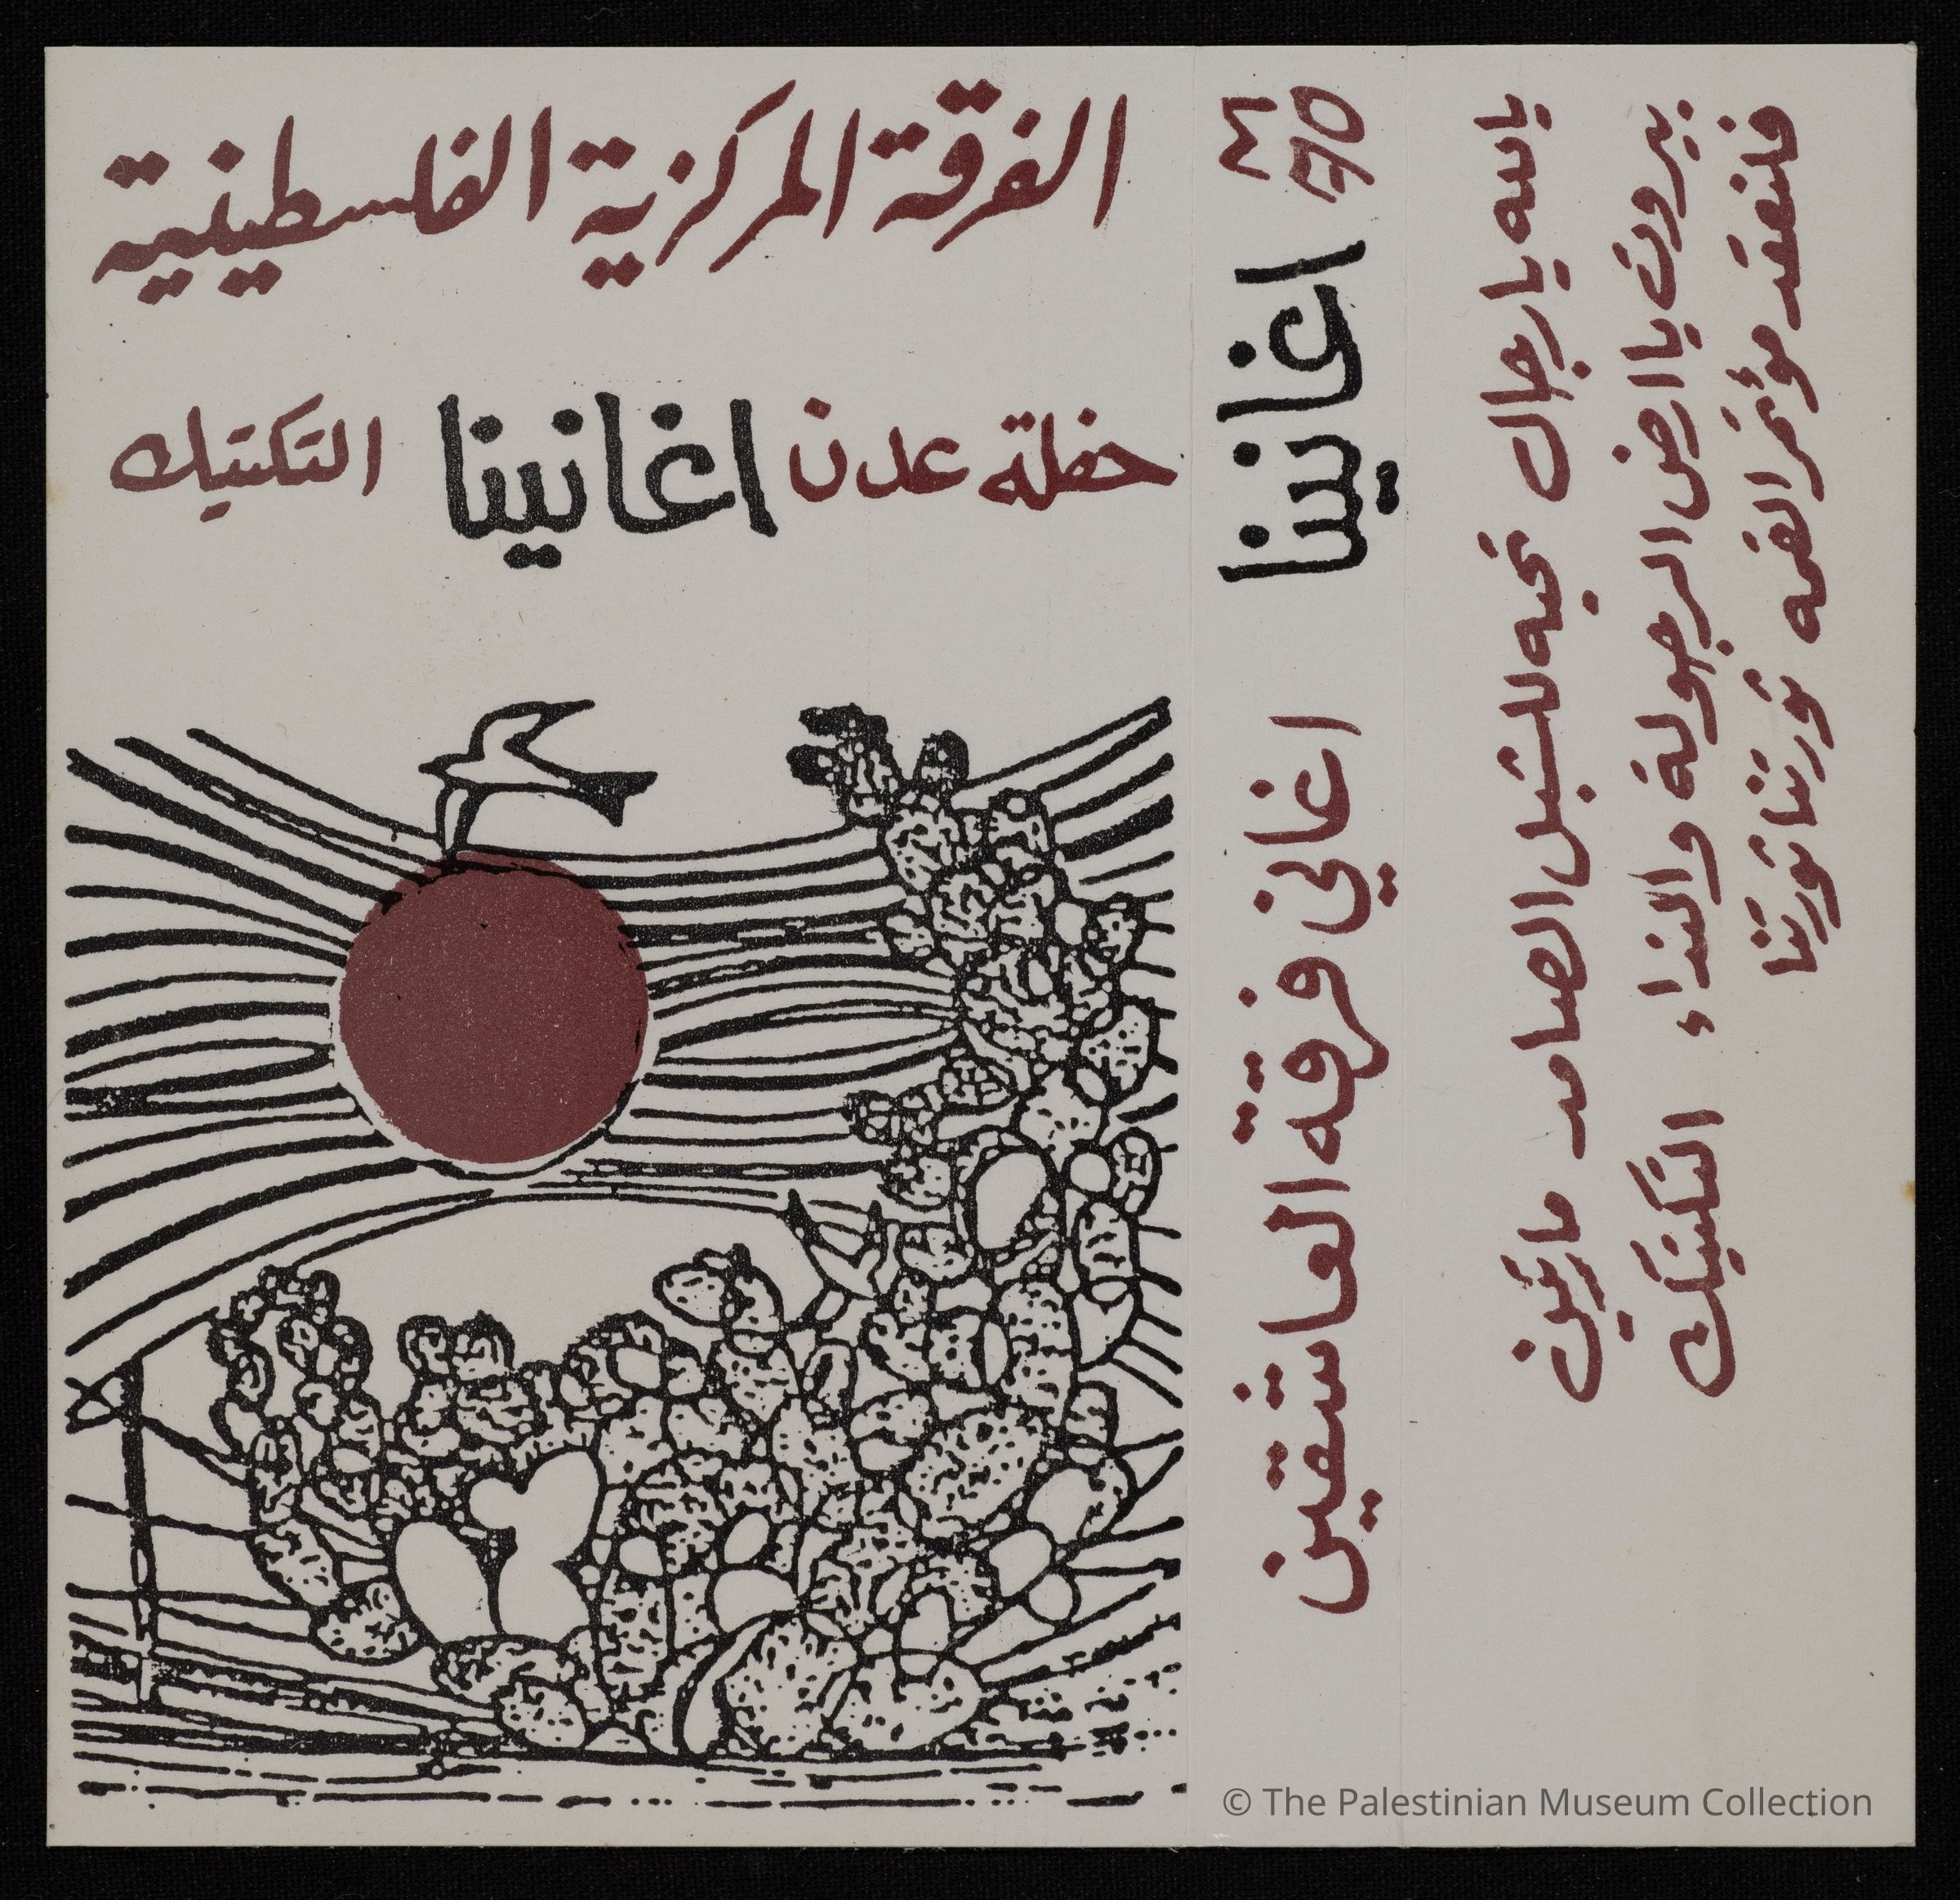 الفرقة المركزية الفلسطينية
حفلة عدن اغانينا التكتيك
اغانينا اغاني فرقه العاشقين
يالله يا رجال تحيه للشبل الصامد مارتون
بيروت يا ارض الرجولة والنداء التكتيك
فلنعقد مؤتمر القمه ثورتنا ثورتنا
© The Palestinian Museum Collection